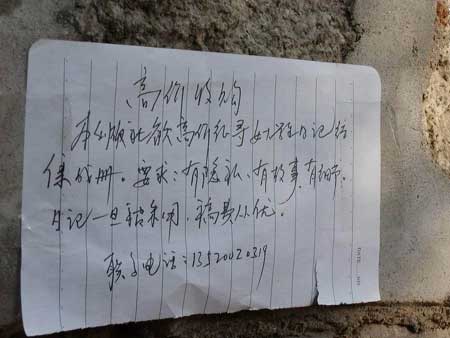 高价收购
本出版社欲高价征寻女生日记结
集成册。要求：有隐私、有故事、有细节。
日记一旦被采用，稿费从优。
联系电话：13520020319